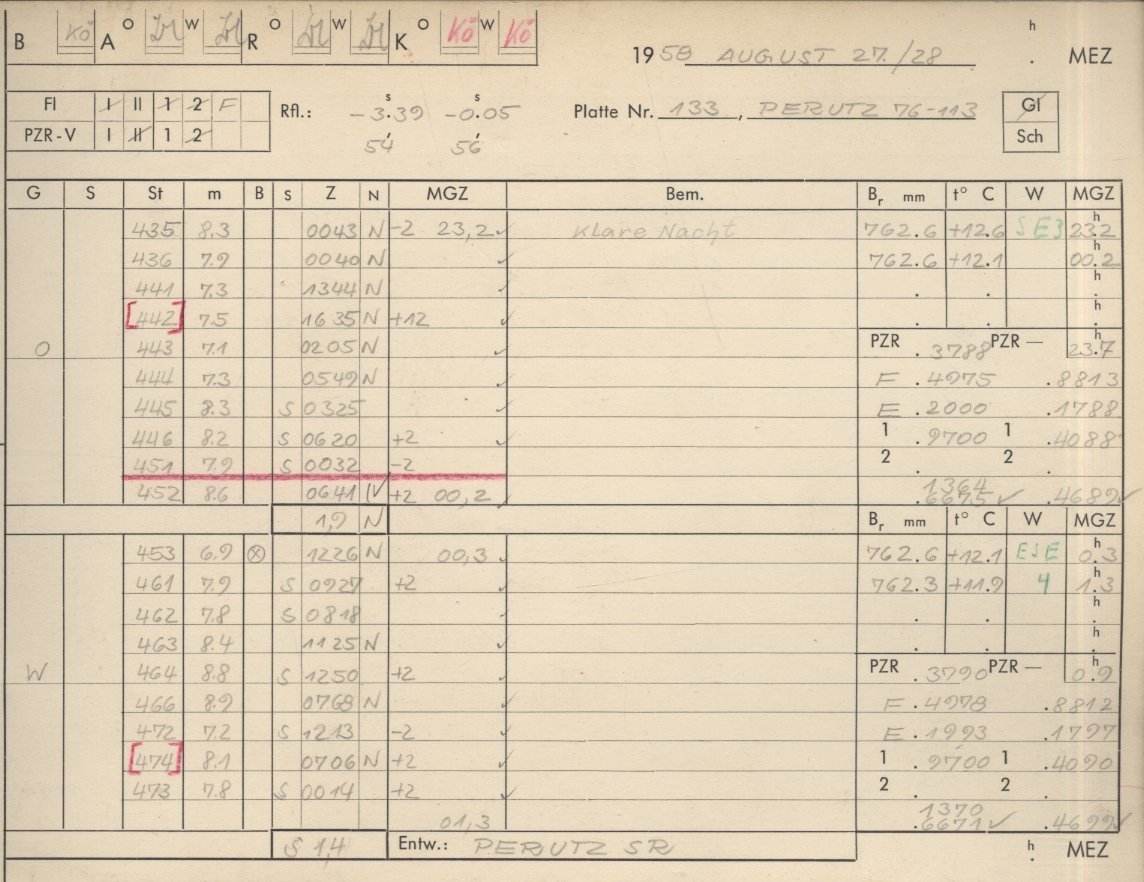 B Kö A O W R O W K O Kö W Kö
h
1958 AUGUST 27./28 . MEZ
FI I II 1 2 F
Rfl.: -3.39 s -0.05 s
Platte Nr. 133, PERUTZ 76-113
Gl
PZR-V I II 1 2
54 56
Sch
G S St m B S Z N MGZ Bem. Br mm t° C W MGZ
435 8.3 0043 N -2 23,2 ✓ Klare Nacht 762.6 +12.6 SE3 23.2
436 7.9 0040 N ✓ 762.6 +12.1 00.2
441 7.3 1344 N ✓ . . .
[442] 7.5 1635 N +12 ✓ . . .
O 443 7.1 0205 N ✓ PZR .3788 PZR — 23.7
444 7.3 0549 N ✓ F .4975 .8813
445 8.3 S 0325 ✓ E .2000 .1788
446 8.2 S 0620 +2 ✓ 1 .9700 1 .4088
451 7.9 S 0032 -2 2 . 2 .
452 8.6 0641 N +2 00,2 ✓ 1364 .6675 ✓ .4689 ✓
1,9 N Br mm t° C W MGZ
453 6.9 ⊗ 1226 N 00,3 ✓ 762.6 +12.1 ESE 0.3
461 7.9 S 0927 +2 ✓ 762.3 +11.9 4 1.3
462 7.8 S 0818 ✓ . . .
463 8.4 1125 N ✓ . . .
W 464 8.8 S 1250 +2 ✓ PZR .3790 PZR — 0.9
466 8.9 0769 N ✓ F .4978 .8812
472 7.2 S 1213 -2 ✓ E .1993 .1797
[474] 8.1 0706 N +2 ✓ 1 .9700 1 .4090
473 7.8 S 0014 +2 ✓ 2 . 2 .
01,3 1370 .6671 ✓ .4699 ✓
S 1,4 Entw.: PERUTZ SR h MEZ